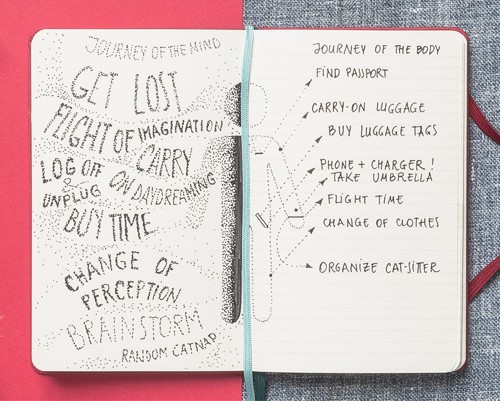 JOURNEY OF THE MIND
GET LOST
FLIGHT OF IMAGINATION
CARRY
LOG OFF
&
UNPLUG
ON DAYDREAMING
BUY TIME
CHANGE OF
PERCEPTION
BRAINSTORM
RANDOM CATNAP
JOURNEY OF THE BODY
FIND PASSPORT
CARRY-ON LUGGAGE
BUY LUGGAGE TAGS
PHONE + CHARGER!
TAKE UMBRELLA
FLIGHT TIME
CHANGE OF CLOTHES
ORGANIZE CAT-SITTER